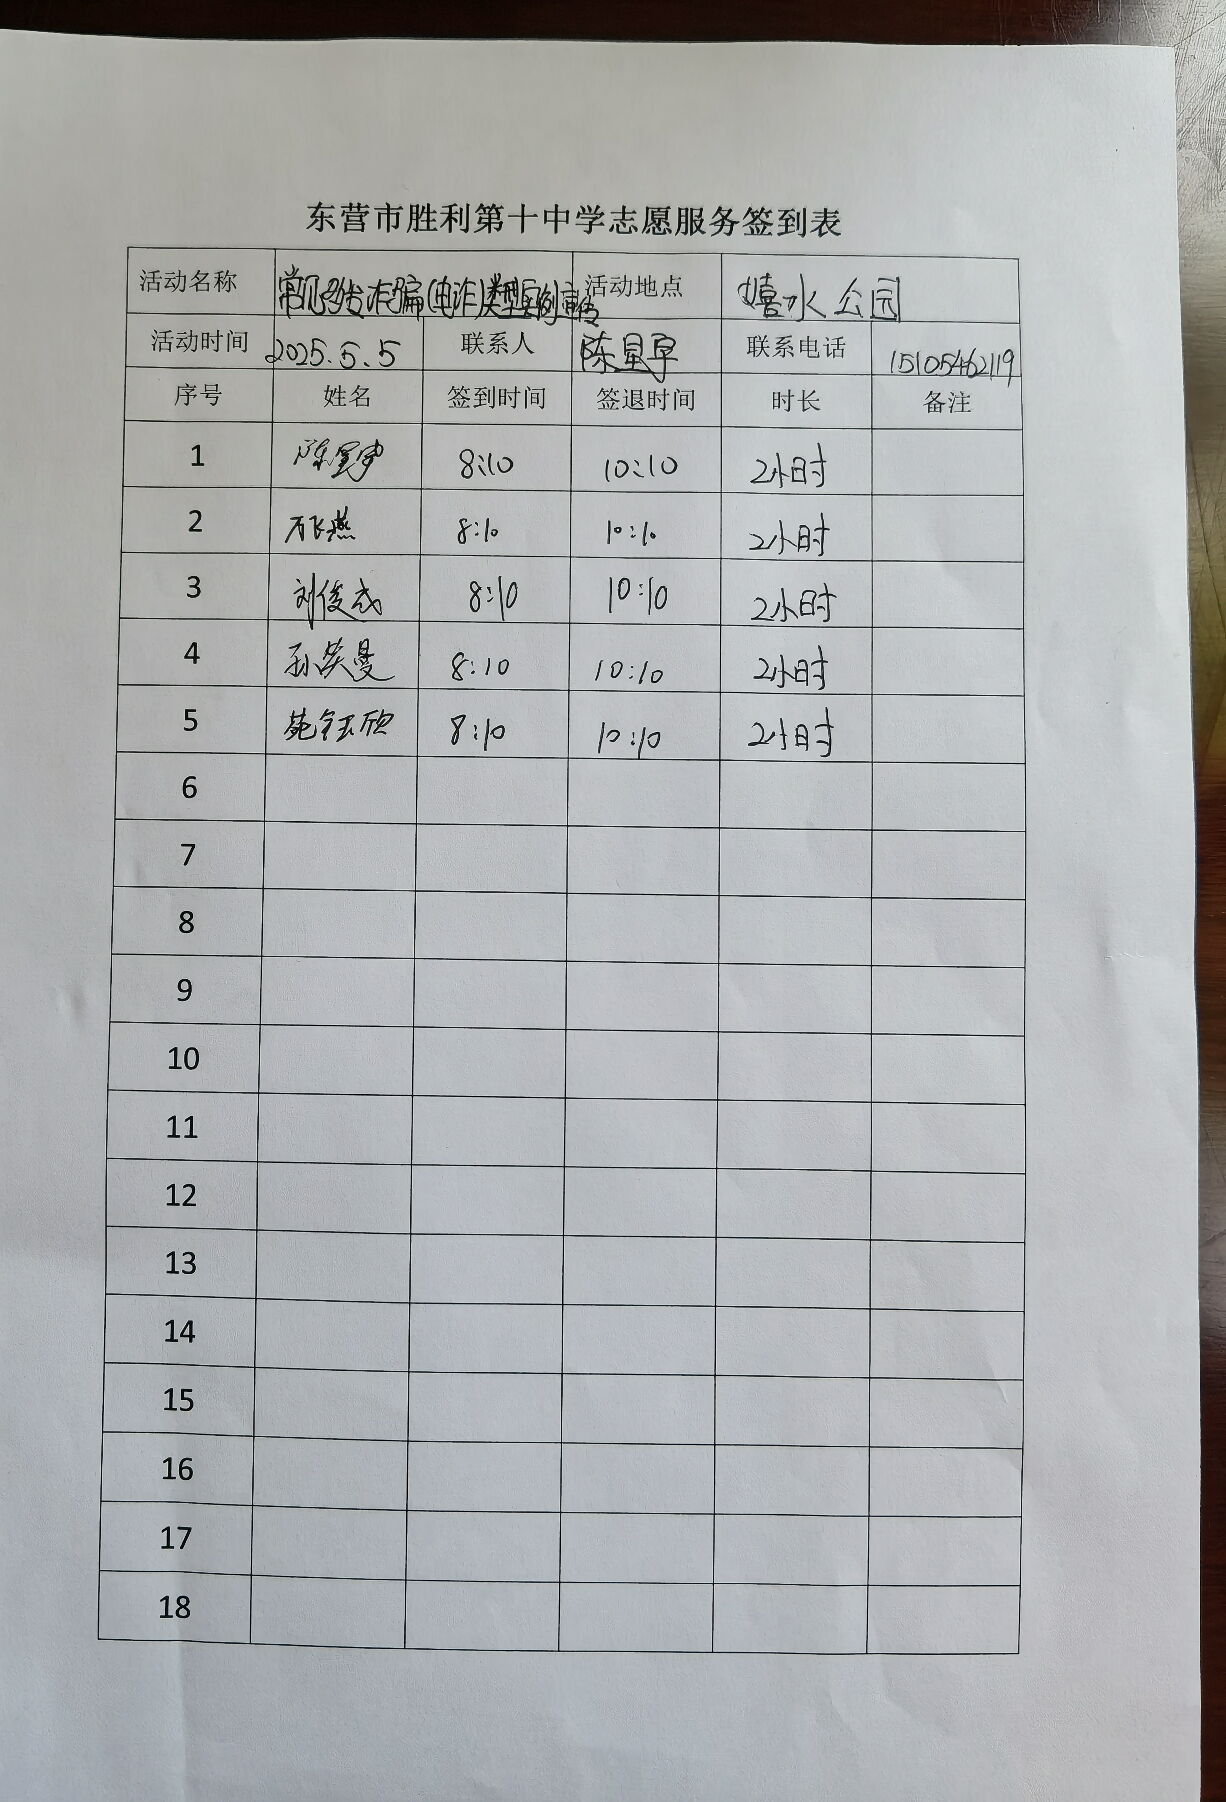 东营市胜利第十中学志愿服务签到表
活动名称 常见多发诈骗(电诈)类型案例宣传 活动地点 嬉水公园
活动时间 2025.5.5 联系人 陈星早 联系电话 15105462119
序号 姓名 签到时间 签退时间 时长 备注
1 陈星宇 8:10 10:10 2小时
2 燕 8:10 10:10 2小时
3 刘俊成 8:10 10:10 2小时
4 孙笑曼 8:10 10:10 2小时
5 钰欣 8:10 10:10 2小时
6
7
8
9
10
11
12
13
14
15
16
17
18